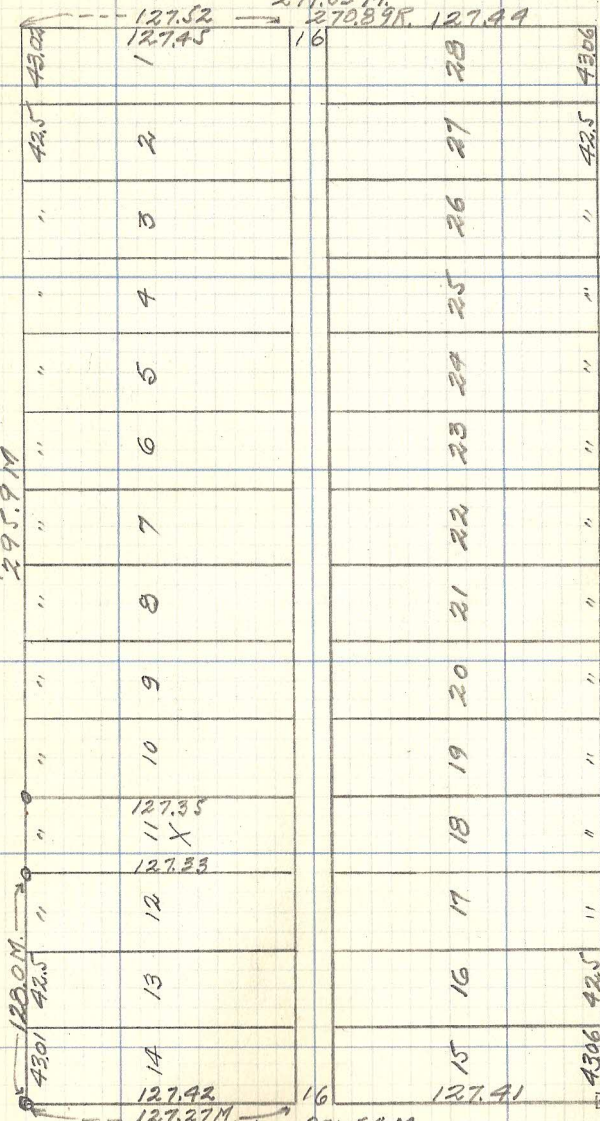 127.52 270.89R. 127.44
127.45 16
43.02 1 28 43.06
42.5 2 27 42.5
" 3 26 "
" 4 25 "
" 5 24 "
" 6 23 "
295.9 M
" 7 22 "
" 8 21 "
" 9 20 "
" 10 19 "
127.35
" 11 X 18 "
127.33
" 12 17 "
128.0 M.
42.5 13 16 42.5
43.01 14 15 43.06
127.42 16 127.41
127.27 M